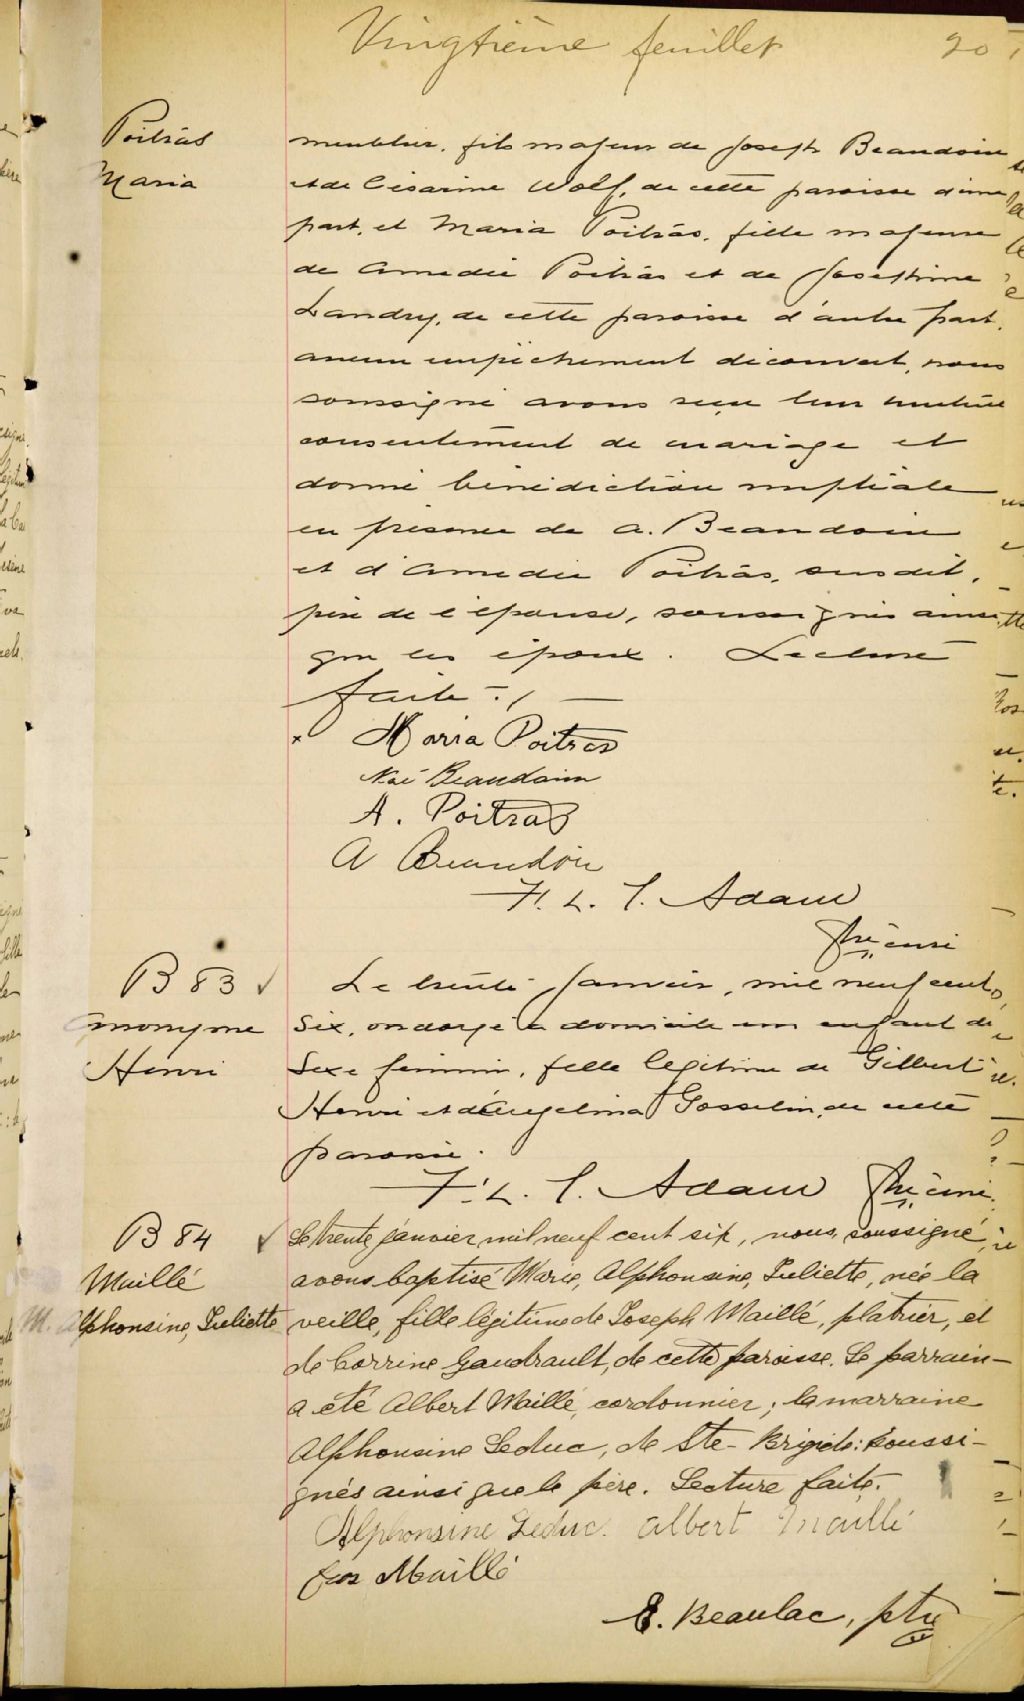 Vingtième feuillet 20
Poitras
Maria
meublier, fils majeur de Joseph Beaudoin
et de Césarine Wolf, de cette paroisse d'une
part, et Maria Poitras, fille majeure
de Amedée Poitras et de Josephine
Landry, de cette paroisse d'autre part,
aucun empêchement découvert, nous
soussigné avons reçu leur mutuel
consentement de mariage et
donné bénédiction nuptiale
en présence de A. Beaudoin
et d'Amedée Poitras, susdit,
père de l'épouse, soussignés ainsi
que les époux. Lecture
faite. /
x Maria Poitras
Noé Beaudoin
A. Poitras
A Beaudoin
F. L. T. Adam
ptre curé
B 83 ✓
Anonyme
Henri
Le trente Janvier, mil neuf cent
six, ondoyé à domicile un enfant de
sexe féminin, fille légitime de Gilbert
Henri et d'Angelina Gosselin, de cette
paroisse.
F. L. T. Adam ptre curé.
B 84 ✓
Maillé
M. Alphonsine, Juliette
Le trente janvier mil neuf cent six, nous, soussigné,
avons baptisé Marie, Alphonsine, Juliette, née la
veille, fille légitime de Joseph Maillé, platrier, et
de Corrine Gaudrault, de cette paroisse. Le parrain
a été Albert Maillé, cordonnier; la marraine
Alphonsine Leduc, de Ste-Brigide: soussi-
gnés ainsi que le père. Lecture faite.
Alphonsine Leduc. Albert Maillé
Jos Maillé
E. Beaulac, ptre